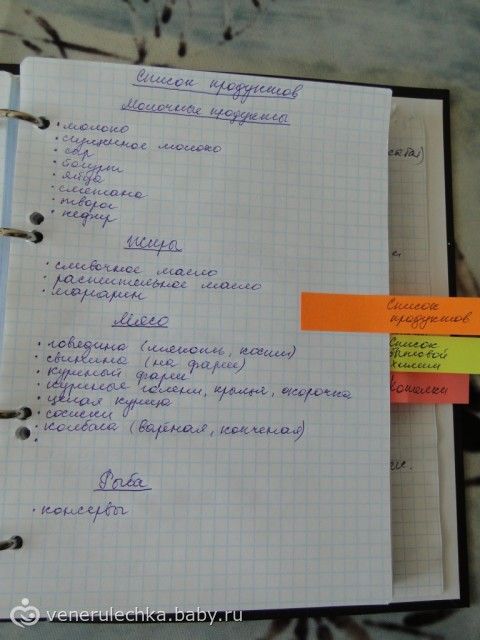 Список продуктов
Молочные продукты
· молоко
· сгущенное молоко
· сыр
· йогурт
· яйца
· сметана
· творог
· кефир
Жиры
· сливочное масло
· растительное масло
· маргарин
Мясо
· говядина (мякоть, кости)
· свинина (на фарш)
· куриный фарш
· куриные голени, крылья, окорочка
· целая курица
· сосиски
· колбаса (вареная, копченая)
·
Рыба
· консервы
Список
продуктов
Список
бытовой
химии
venerulechka.baby.ru